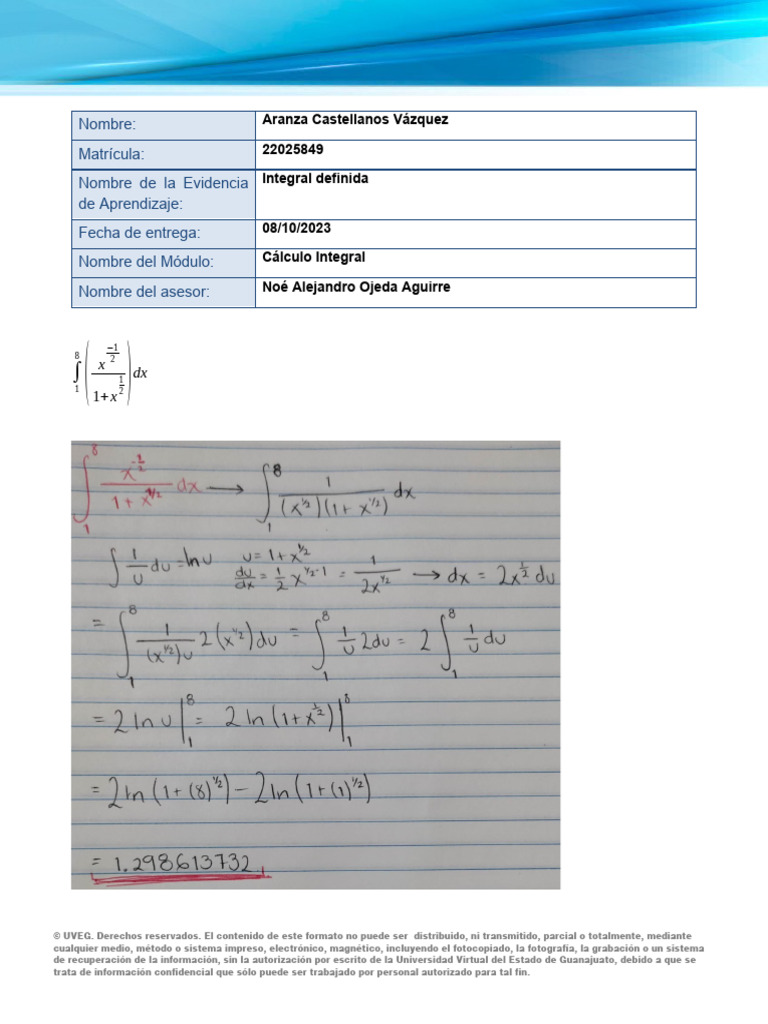 Nombre: Aranza Castellanos Vázquez
Matrícula: 22025849
Nombre de la Evidencia de Aprendizaje: Integral definida
Fecha de entrega: 08/10/2023
Nombre del Módulo: Cálculo Integral
Nombre del asesor: Noé Alejandro Ojeda Aguirre
∫₁⁸ (x^(-1/2) / (1+x^(1/2))) dx
∫₁⁸ x^(-1/2) / (1 + x^(1/2)) dx → ∫₁⁸ 1 / ((x^(1/2))(1 + x^(1/2))) dx
∫ 1/u du = ln u   u = 1 + x^(1/2)
du/dx = 1/2 x^(1/2 - 1) = 1 / (2x^(1/2)) → dx = 2x^(1/2) du
= ∫₁⁸ 1 / ((x^(1/2))u) 2(x^(1/2)) du = ∫₁⁸ 1/u 2du = 2 ∫₁⁸ 1/u du
= 2 ln u |₁⁸ = 2 ln (1 + x^(1/2)) |₁⁸
= 2 ln (1 + (8)^(1/2)) - 2 ln (1 + (1)^(1/2))
= 1.298613732
© UVEG. Derechos reservados. El contenido de este formato no puede ser distribuido, ni transmitido, parcial o totalmente, mediante
cualquier medio, método o sistema impreso, electrónico, magnético, incluyendo el fotocopiado, la fotografía, la grabación o un sistema
de recuperación de la información, sin la autorización por escrito de la Universidad Virtual del Estado de Guanajuato, debido a que se
trata de información confidencial que sólo puede ser trabajado por personal autorizado para tal fin.